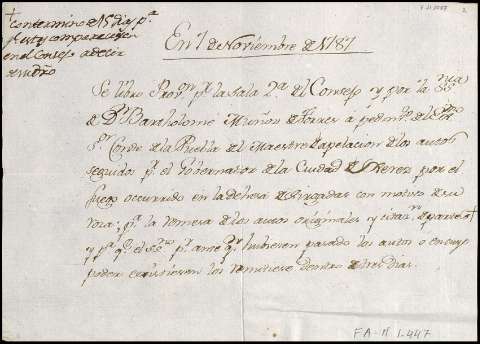 +
Con termino de 15 dias pª
q.e esta y comparecer
en el Consejo a decir
de su dro
En 7 de Noviembre de 1787
Se libro Prov.on p.r la Sala 2.ª del Consejo y por la Ss.ria
de D.n Bartholomé Muñoz de Torres á pedim.to del
S.r Conde de la Puebla del Maestre en apelacion de los autos
seguidos p.r el Gobernador de la Ciudad de Xerez por el
fuego occurrido en la dehesa de Brogadas con motivo de su
roza: p.ª la remesa de los autos originales y citac.on de partes +
y p.ª q.e el Ss.no p.r ante q.n hubiesen pasado los autos o en cuyo
poder existiesen los remitiese dentro de tres dias.
FA-N. 1.447